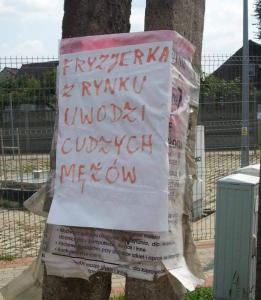 FRYZJERKA
Z RYNKU
UWODZI
CUDZYCH
MĘŻÓW